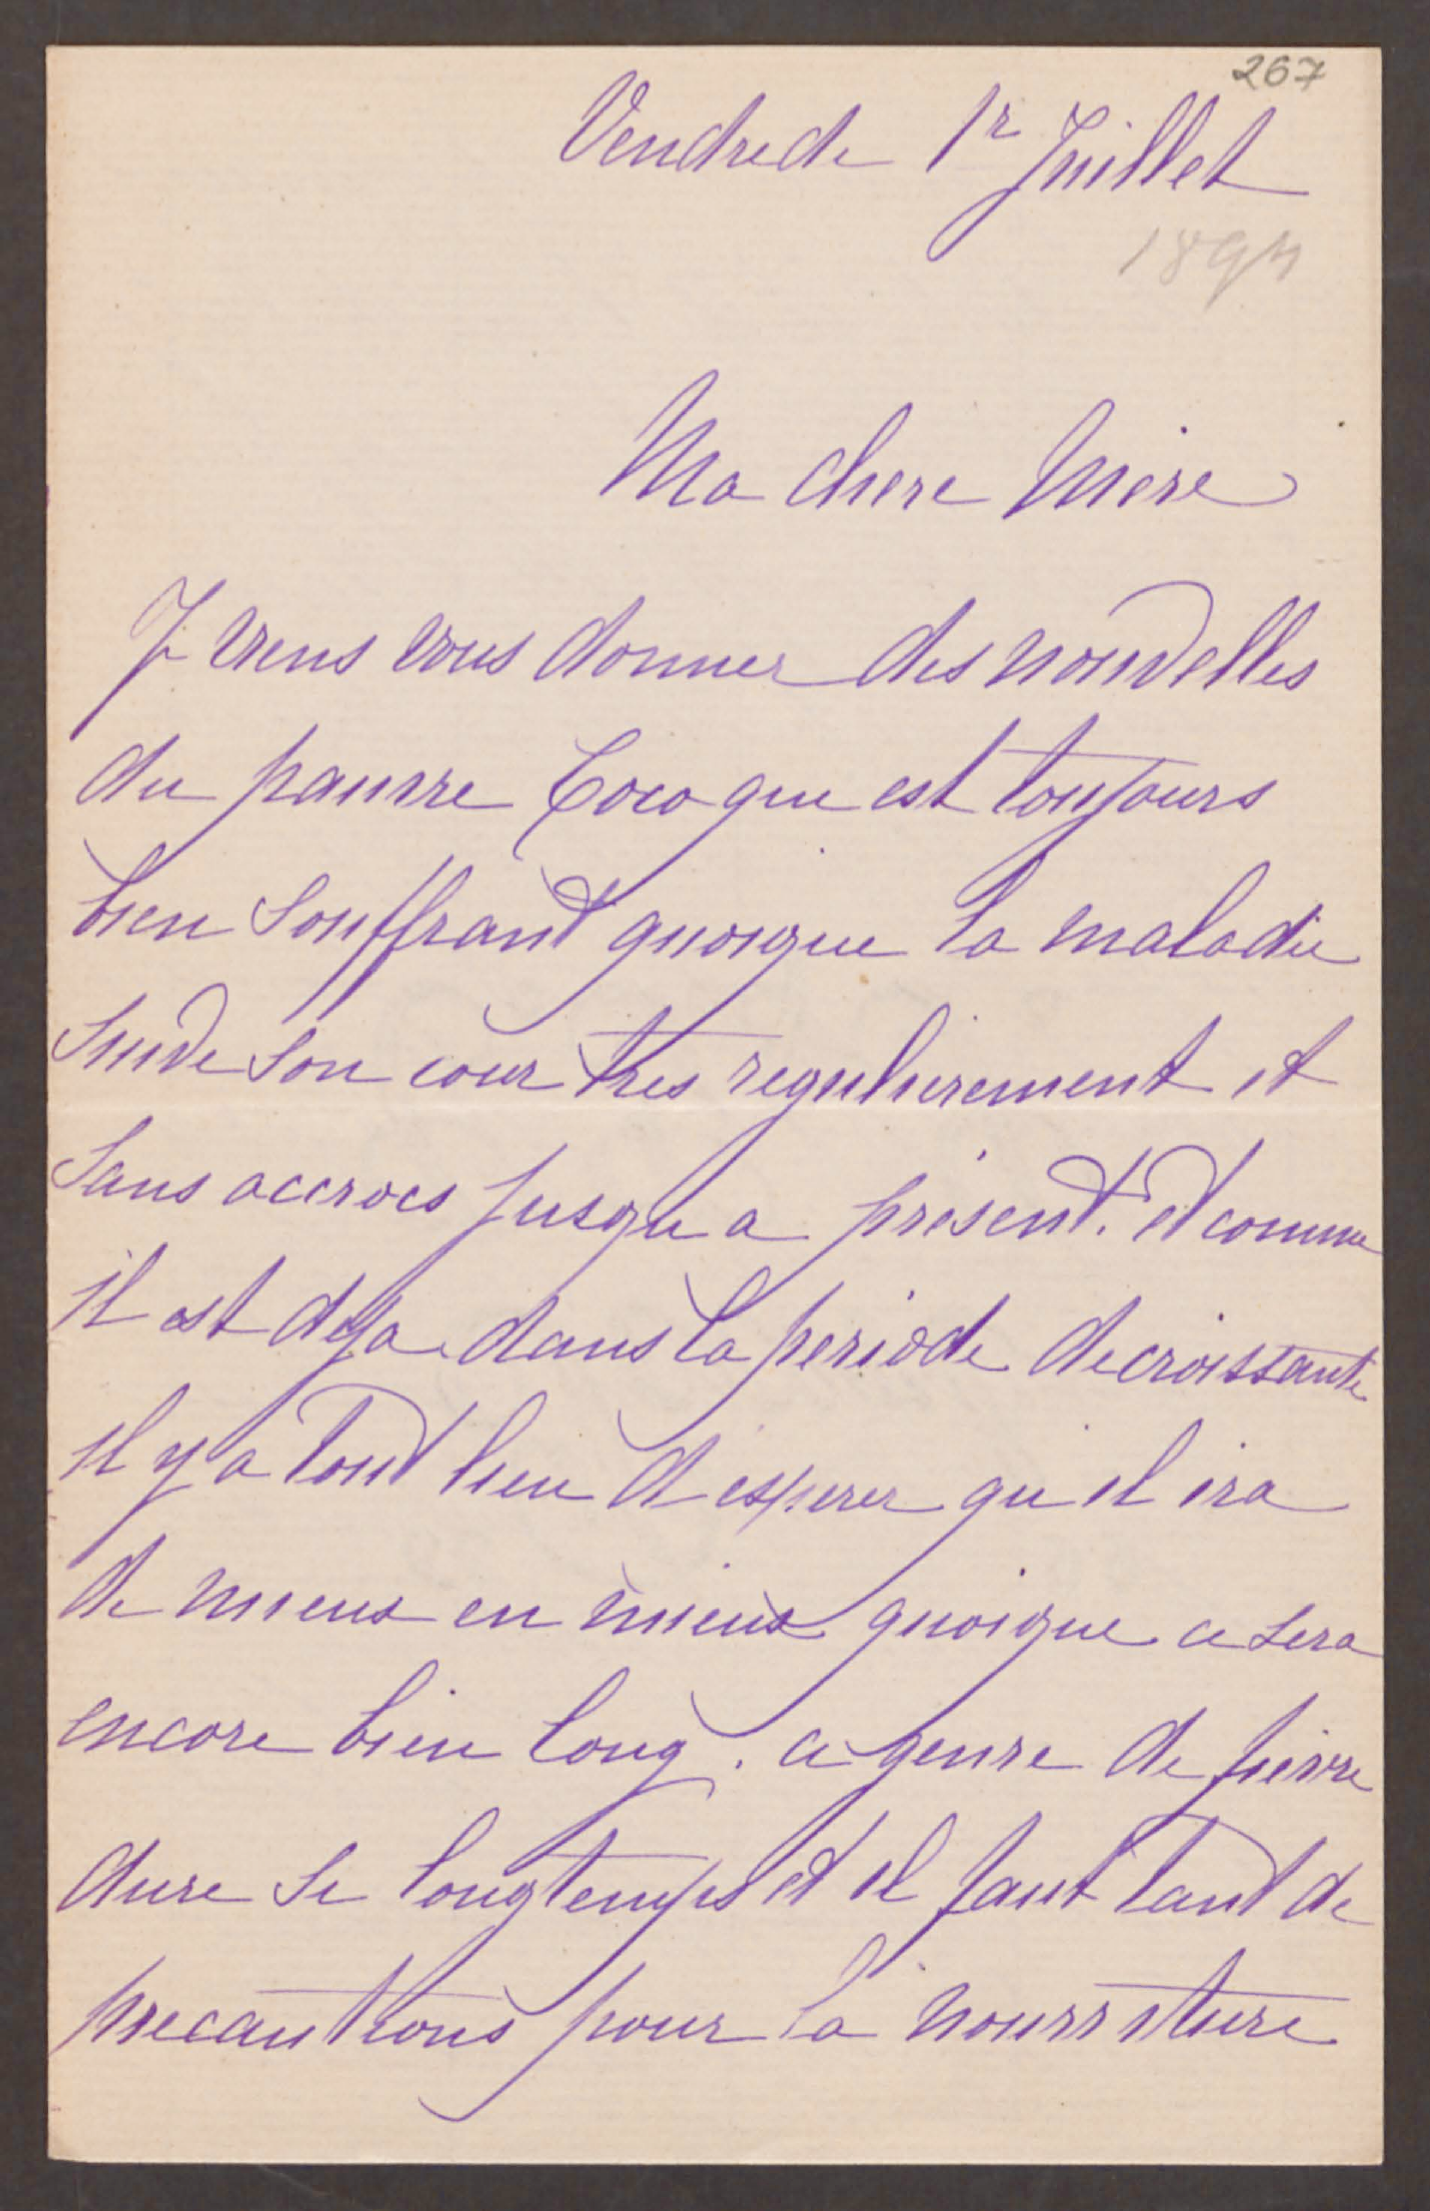 267
Vendredi 1r Juillet
Ma chere Mère
Je viens vous donner des nouvelles
du pauvre Coco qui est toujours
bien souffrant quoique la maladie
suive son cour tres regulierement et
sans accrocs jusqu a present. et comme
il est deja dans la periode decroissante
il y a tout lieu d esperer qu il ira
de mieux en mieux quoique ce sera
encore bien long. ce genre de fievre
dure si longtemps et il faut tant de
precautions pour la nourriture